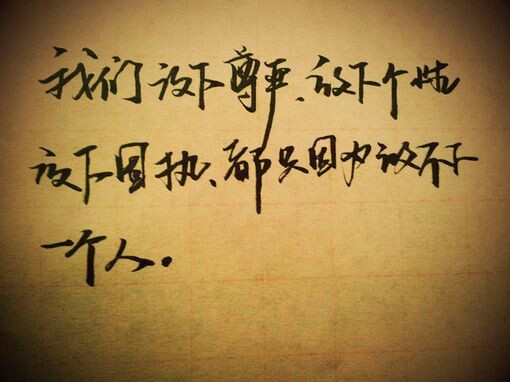 我们放下尊严、放下个性
放下固执、都只因为放不下
一个人。